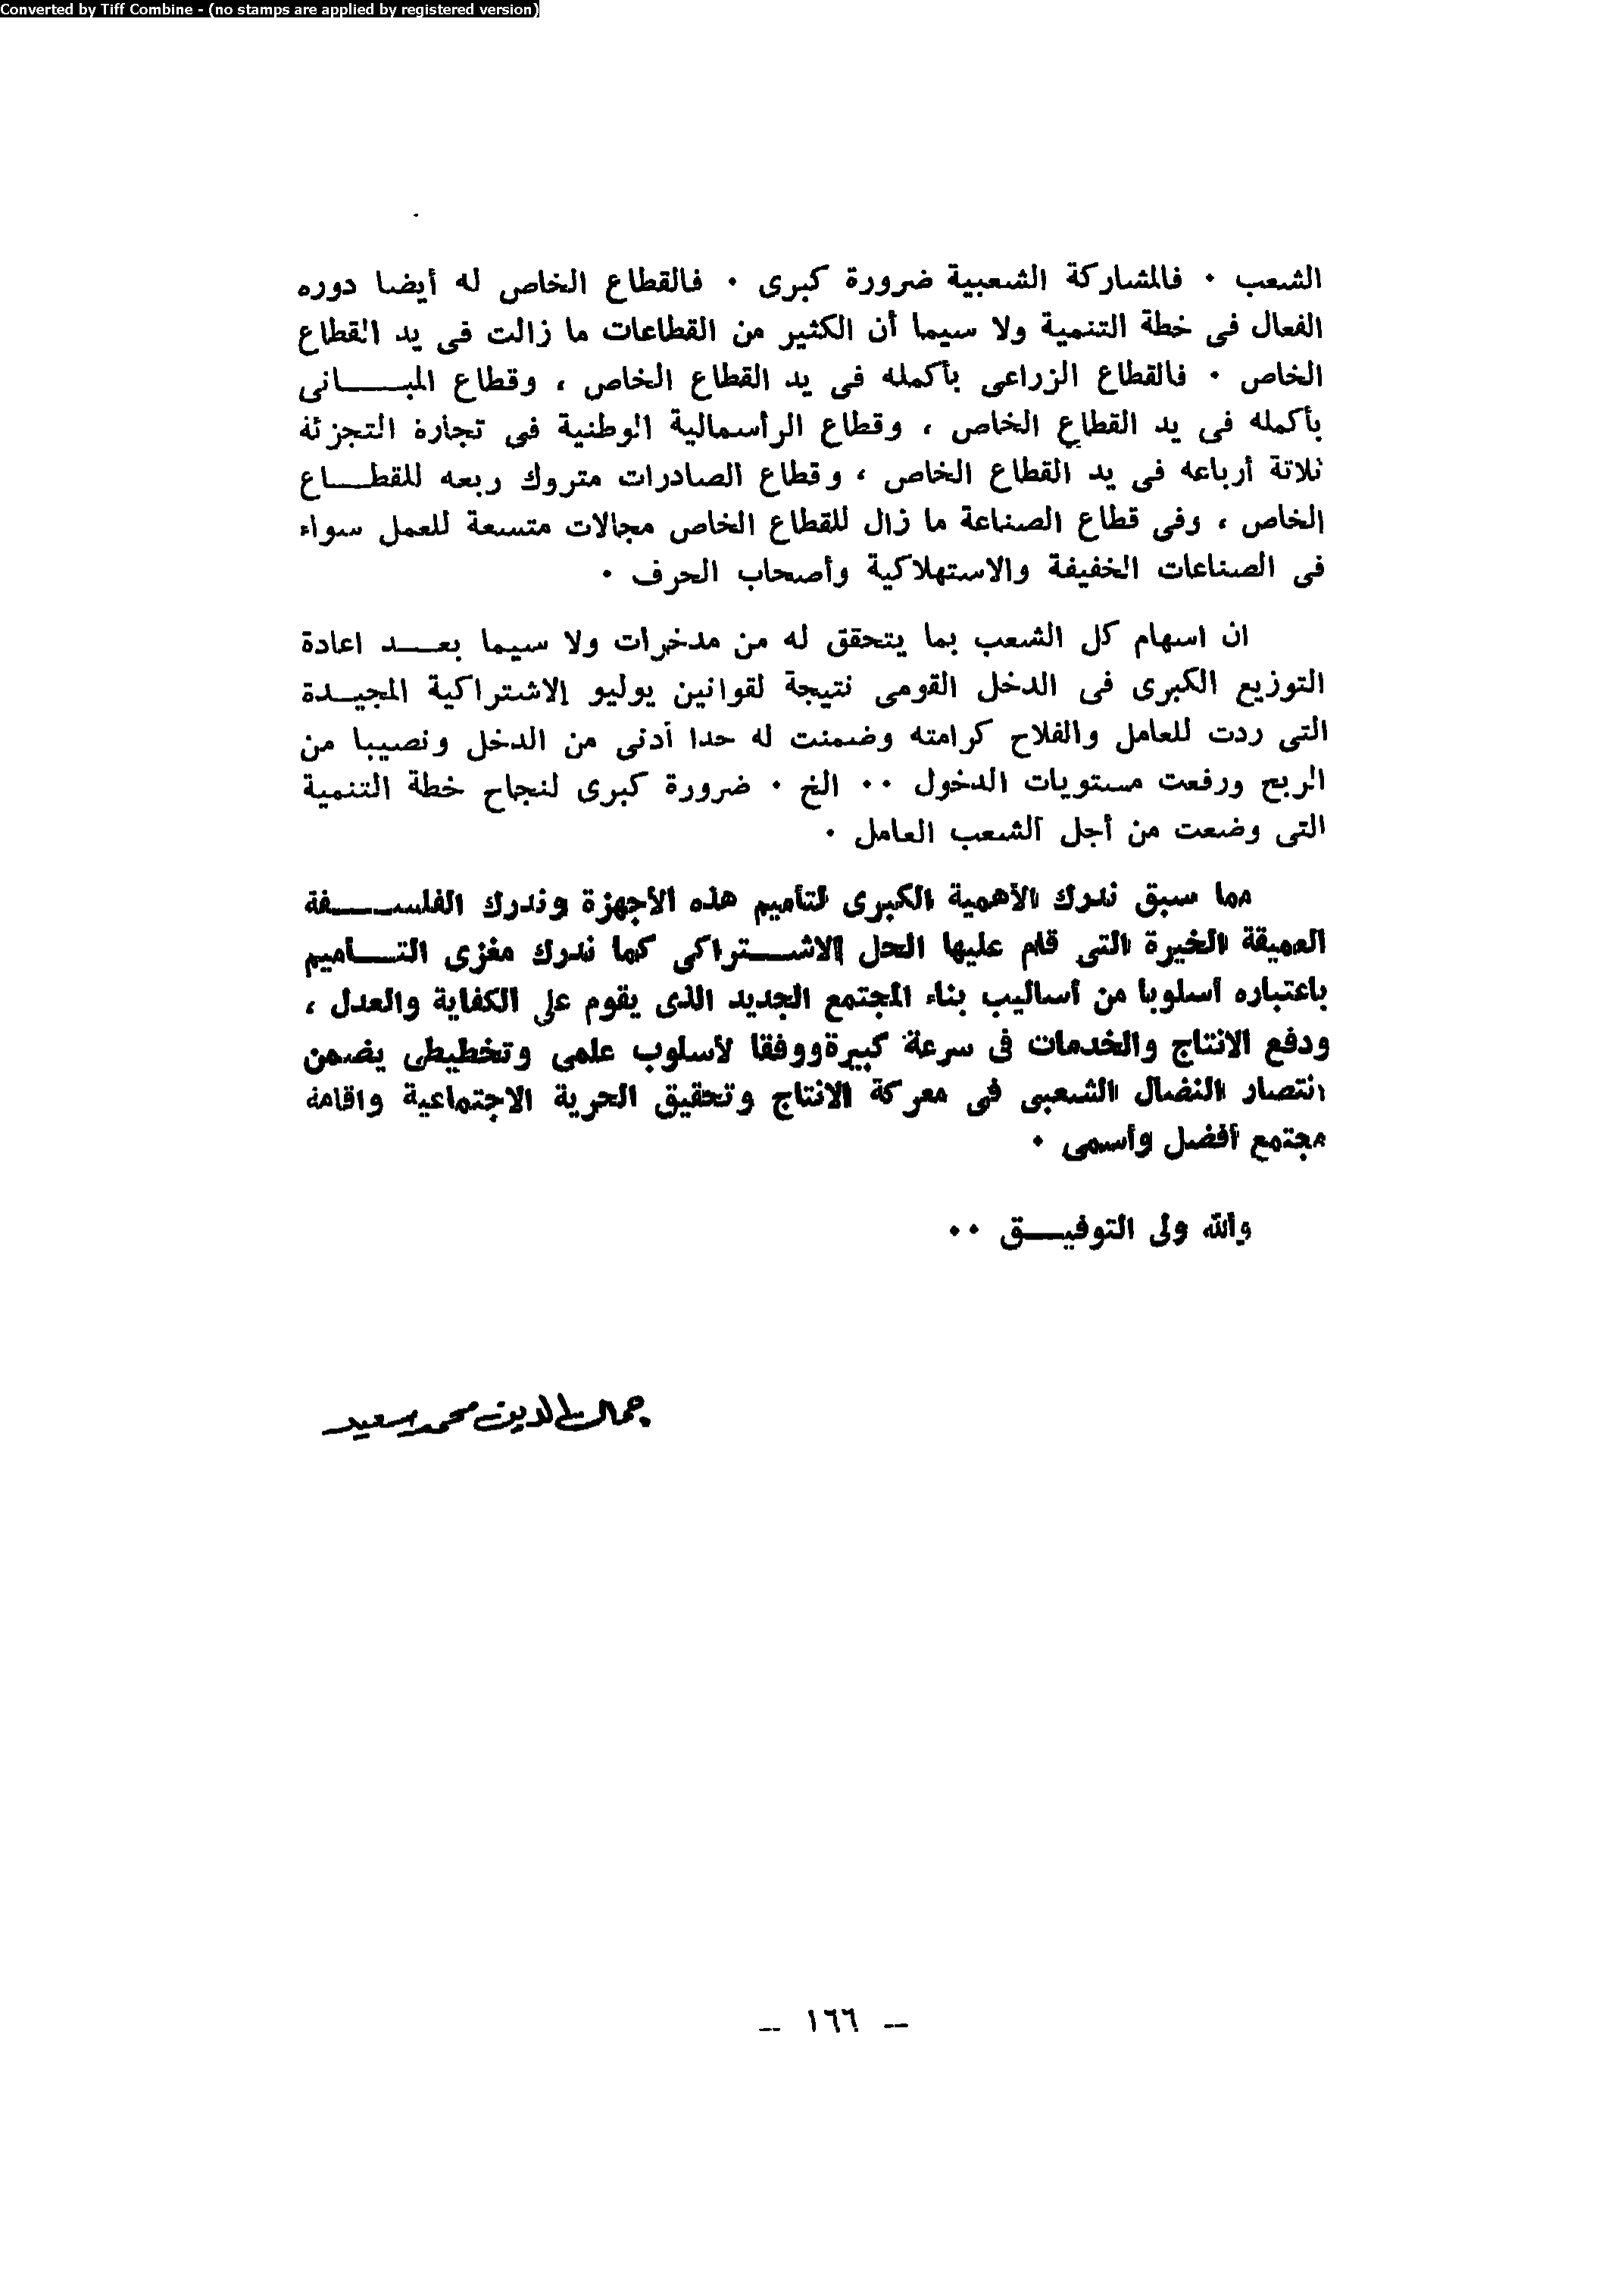 Converted by Tiff Combine - (no stamps are applied by registered version)
الشعب ٠ فالمشاركة الشعبية ضرورة كبرى ٠ فالقطاع الخاص له أيضا دوره
الفعال فى خطة التنمية ولا سيما أن الكثير من القطاعات ما زالت فى يد القطاع
الخاص ٠ فالقطاع الزراعى بأكمله فى يد القطاع الخاص ، وقطاع المبـــانى
بأكمله فى يد القطاع الخاص ، وقطاع الرأسمالية الوطنية فى تجارة التجزئة
ثلاثة أرباعه فى يد القطاع الخاص ، وقطاع الصادرات متروك ربعه للقطـــاع
الخاص ، وفى قطاع الصناعة ما زال للقطاع الخاص مجالات متسعة للعمل سواء
فى الصناعات الخفيفة والاستهلاكية وأصحاب الحرف ٠
ان اسهام كل الشعب بما يتحقق له من مدخرات ولا سيما بعـــد اعادة
التوزيع الكبرى فى الدخل القومى نتيجة لقوانين يوليو الاشتراكية المجيــدة
التى ردت للعامل والفلاح كرامته وضمنت له حدا أدنى من الدخل ونصيبا من
الربح ورفعت مستويات الدخول ٠٠ الخ ٠ ضرورة كبرى لنجاح خطة التنمية
التى وضعت من أجل الشعب العامل ٠
مما سبق ندرك الأهمية الكبرى لتأميم هذه الأجهزة وندرك الفلســــفة
العميقة الخيرة التى قام عليها الحل الاشـــتراكى كما ندرك مغزى التـــأميم
باعتباره أسلوبا من أساليب بناء المجتمع الجديد الذى يقوم على الكفاية والعدل ،
ودفع الانتاج والخدمات فى سرعة كبيرة ووفقا لأسلوب علمى وتخطيطى يضمن
انتصار النضال الشعبى فى معركة الانتاج وتحقيق الحرية الاجتماعية واقامة
مجتمع أفضل وأسمى ٠
والله ولى التوفيـــق ٠٠
جمال الدين محمد سعيد
— ١٦٦ —